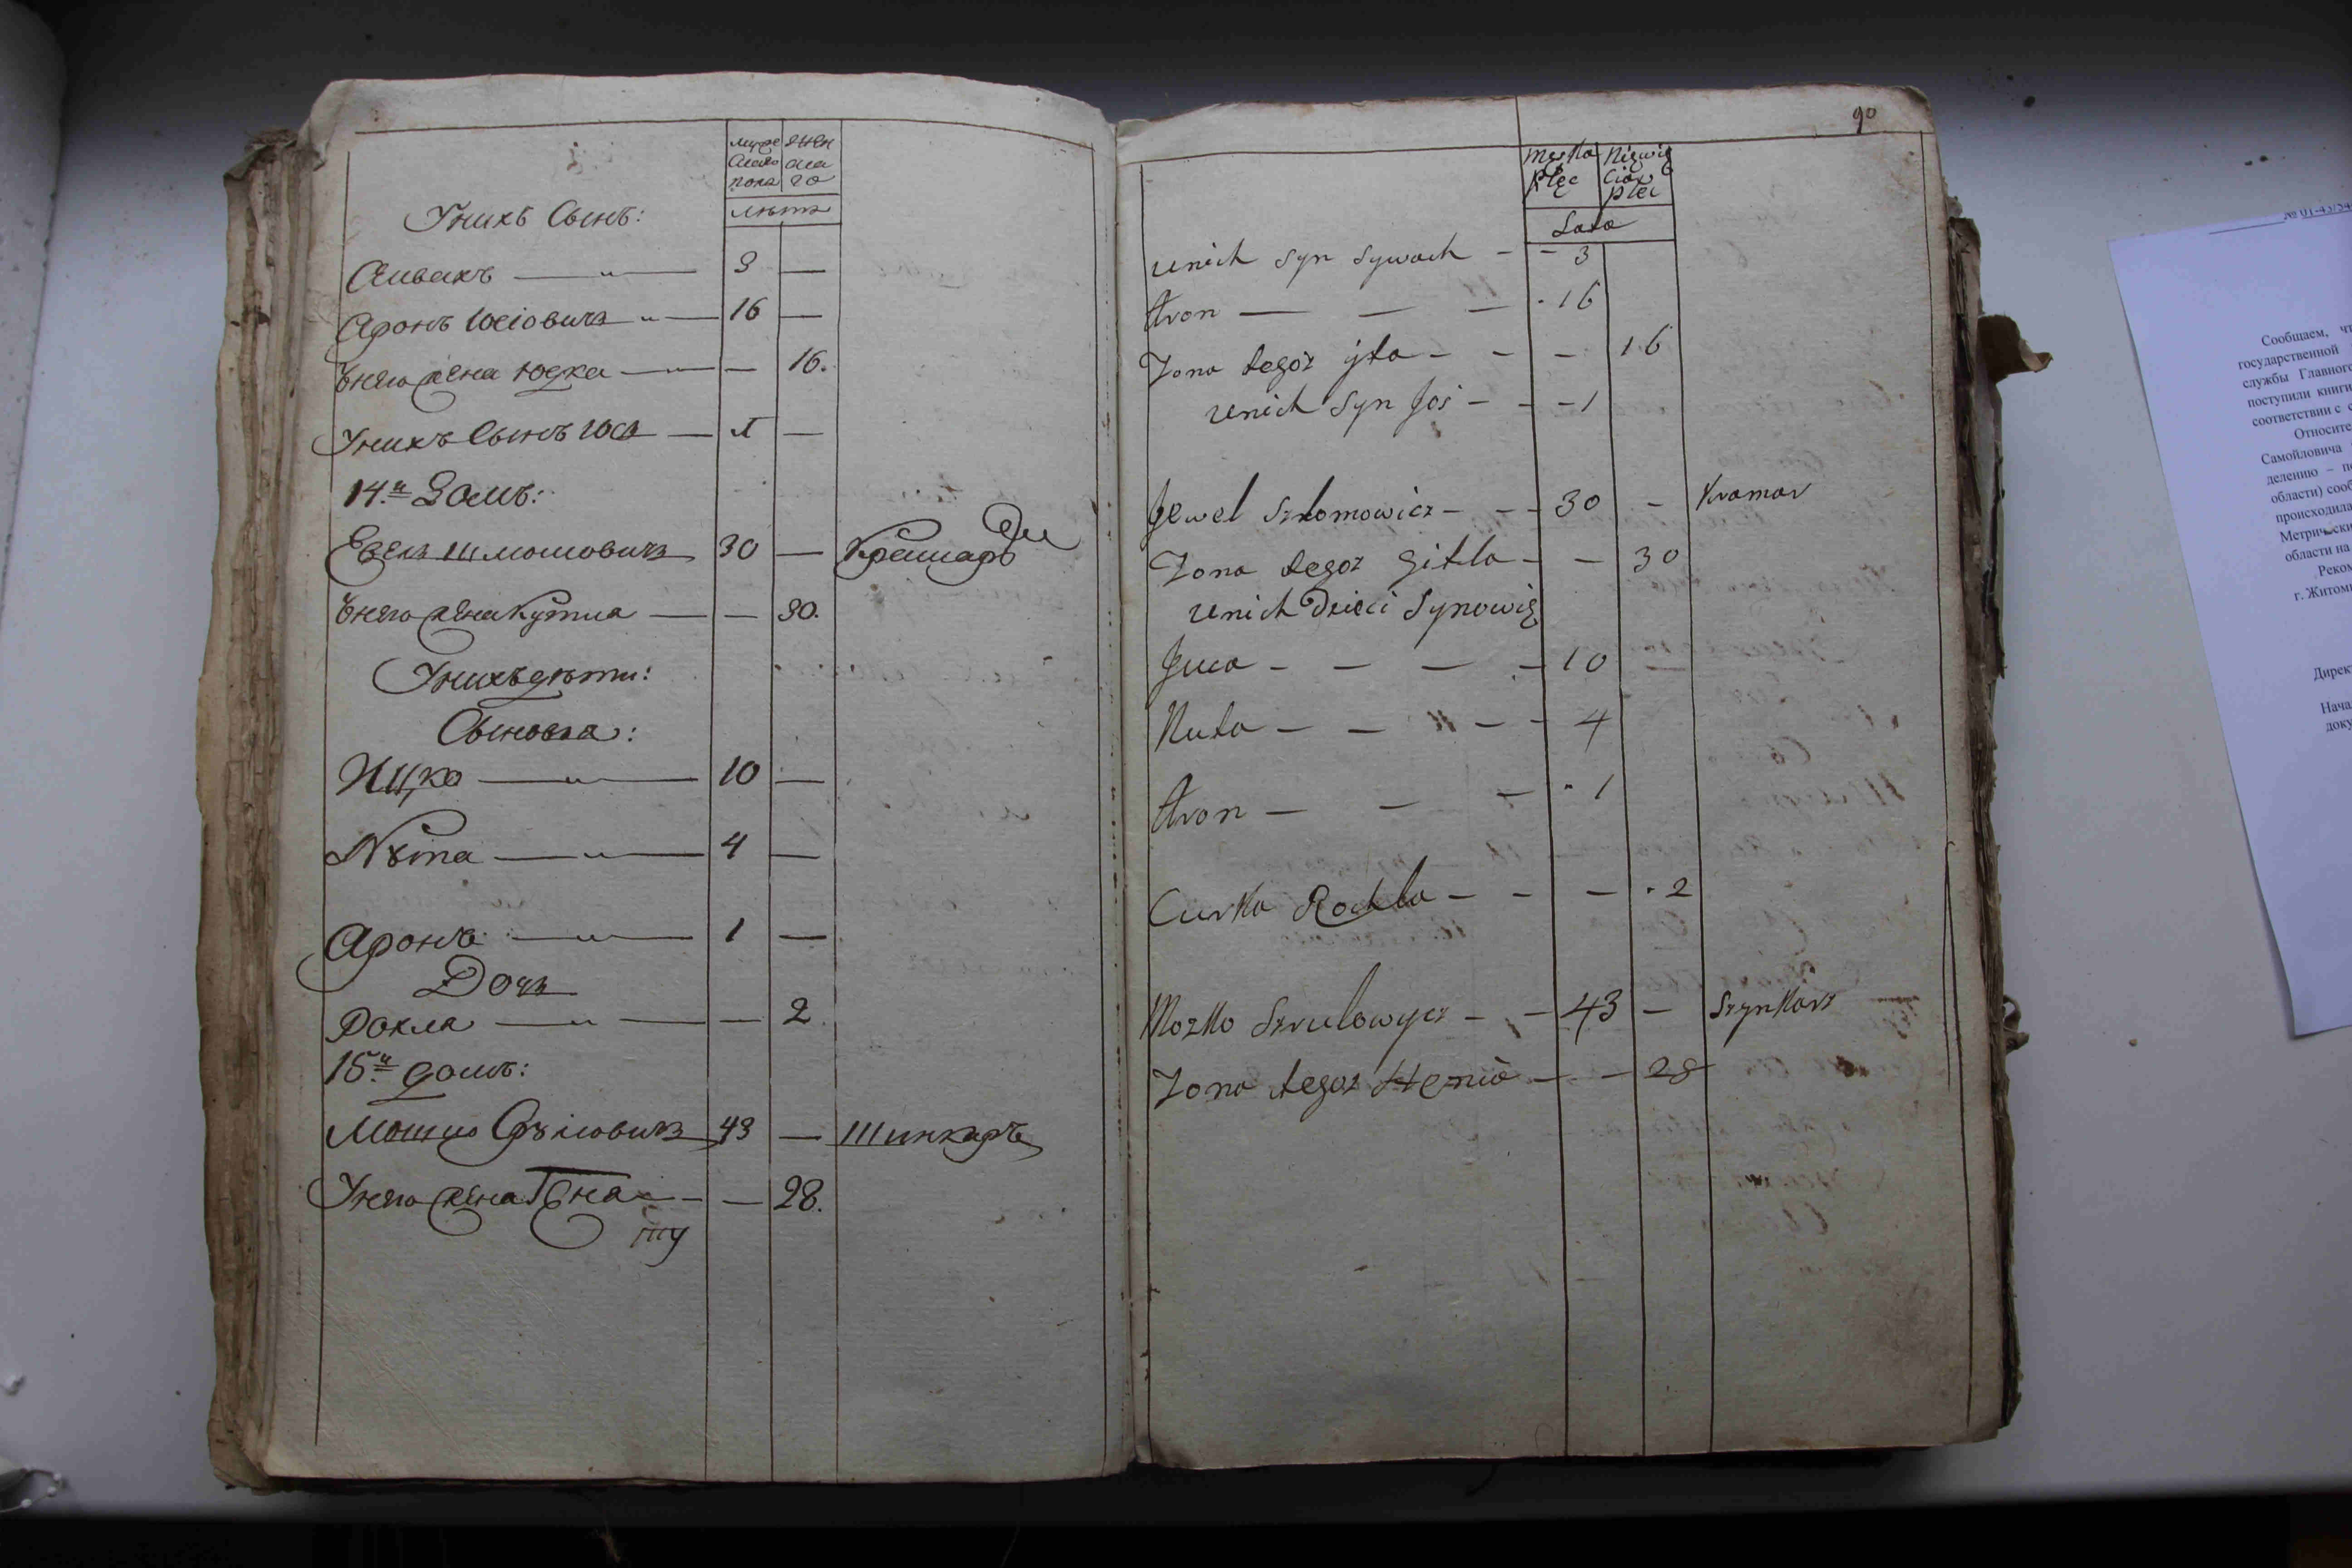 муже
ска
пола
жен
ска
го
лѣта
Уних Сынъ:
Сивахъ — " — 3 —
Аронъ Юсіовичъ " — 16 —
Унего жена Юдка — — 16.
Унихъ Сынъ Юсь — 1 —
14.й Домъ:
Евель Шмоиловичъ 30 — Крамарь
Унего жена Кутла — — 30.
Унихъ дѣти:
Сыновья:
Ицко — " — 10 —
Нута — " — 4 —
Аронъ — " — 1 —
Дочь
Рохла — " — — 2
15.й домъ:
Мошко Сруловичъ 43 — Шинкаръ
Унего жена Геня — — 28.
90
Męska
płeć
Niewie
ściey
płci
Lata
unich Syn Sywach - - 3
Aron — — — 16
Zona tegoż yta - - - 16
unich Syn Joś - - - 1
Jewel Szlomowicz - - - 30 - Kramar
Zona tegoz Gitla - - 30
unich Dzieci Synowie
Juca - — — - 10
Nuta - — " - - 4
Aron — — — 1
Curka Rochla - - - 2
Moszko Szrulowycz - - 43 - Szynkarz
Zona tegoz Henia — — 28
№ 01-43/54
Сообщаем,
государственной
службы Главного
поступили книги
соответствии с
Самойловича
области)
Метрически
области на
г. Житом